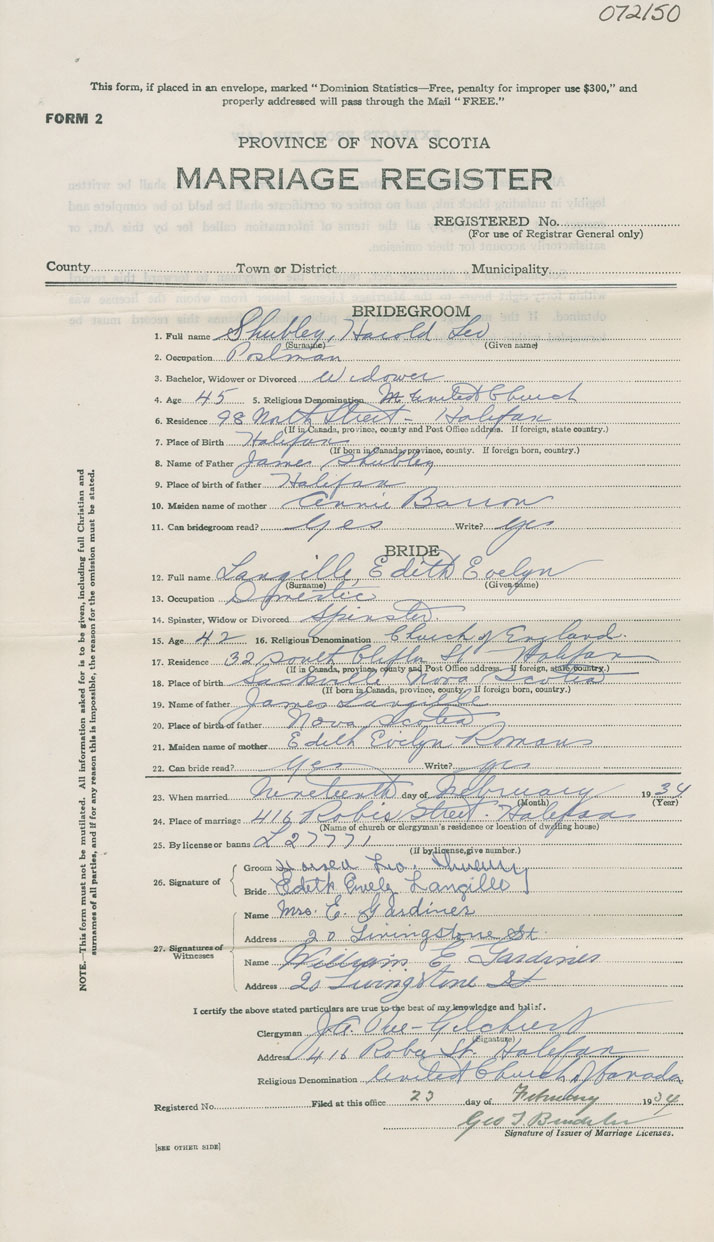 072150
This form, if placed in an envelope, marked "Dominion Statistics—Free, penalty for improper use $300," and
properly addressed will pass through the Mail "FREE."
FORM 2
PROVINCE OF NOVA SCOTIA
MARRIAGE REGISTER
REGISTERED No.
(For use of Registrar General only)
County Town or District Municipality
BRIDEGROOM
1. Full name Shubley, Harold Leo
(Surname) (Given name)
2. Occupation Postman
3. Bachelor, Widower or Divorced Widower
4. Age 45 5. Religious Denomination United Church
6. Residence 98 North Street - Halifax
(If in Canada, province, county and Post Office address. If foreign, state country.)
7. Place of Birth Halifax
(If born in Canada, province, county. If foreign born, country.)
8. Name of Father James Shubley
9. Place of birth of father Halifax
10. Maiden name of mother Annie Barron
11. Can bridegroom read? Yes Write? Yes
BRIDE
12. Full name Langille, Edith Evelyn
(Surname) (Given name)
13. Occupation Domestic
14. Spinster, Widow or Divorced Spinster
15. Age 42 16. Religious Denomination Church of England.
17. Residence 32 South Clifton St. Halifax
(If in Canada, province, county and Post Office address. If foreign, state country.)
18. Place of birth Sackville Nova Scotia
(If born in Canada, province, county. If foreign born, country.)
19. Name of father James Langille
20. Place of birth of father Nova Scotia
21. Maiden name of mother Edith Evelyn Romans
22. Can bride read? Yes Write? yes
23. When married Nineteenth day of February 1934
(Month) (Year)
24. Place of marriage 416 Robie Street. Halifax
(Name of church or clergyman's residence or location of dwelling house)
25. By license or banns L27771
(If by license, give number.)
26. Signature of Groom Harold Leo Shubley
Bride Edith Evelyn Langille
27. Signatures of Witnesses
Name Mrs. E. Gardiner
Address 20 Livingstone St.
Name William E. Gardiner
Address 20 Livingstone St
I certify the above stated particulars are true to the best of my knowledge and belief.
Clergyman
(Signature)
Address 416 Robie St. Halifax
Religious Denomination United Church of Canada
Registered No. Filed at this office 23 day of February 1934
Geo T
Signature of Issuer of Marriage Licenses.
[SEE OTHER SIDE]
NOTE.—This form must not be mutilated. All information asked for is to be given, including full Christian and
surnames of all parties, and if for any reason this is impossible, the reason for the omission must be stated.